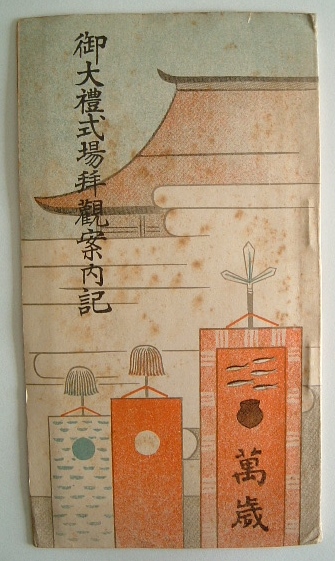 御大禮式場拜觀案内記
萬歳